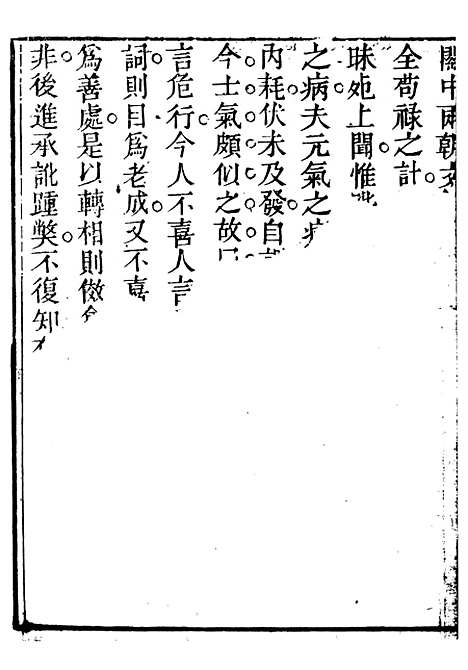 關中兩朝文
全苟祿之計
昧死上聞惟
之病夫元氣之病
內耗伏未及發自
今士氣頗似之故
言危行今人不喜人言
詞則目爲老成又不喜
爲善處是以轉相則傚
非後進承訛踵獘不復知